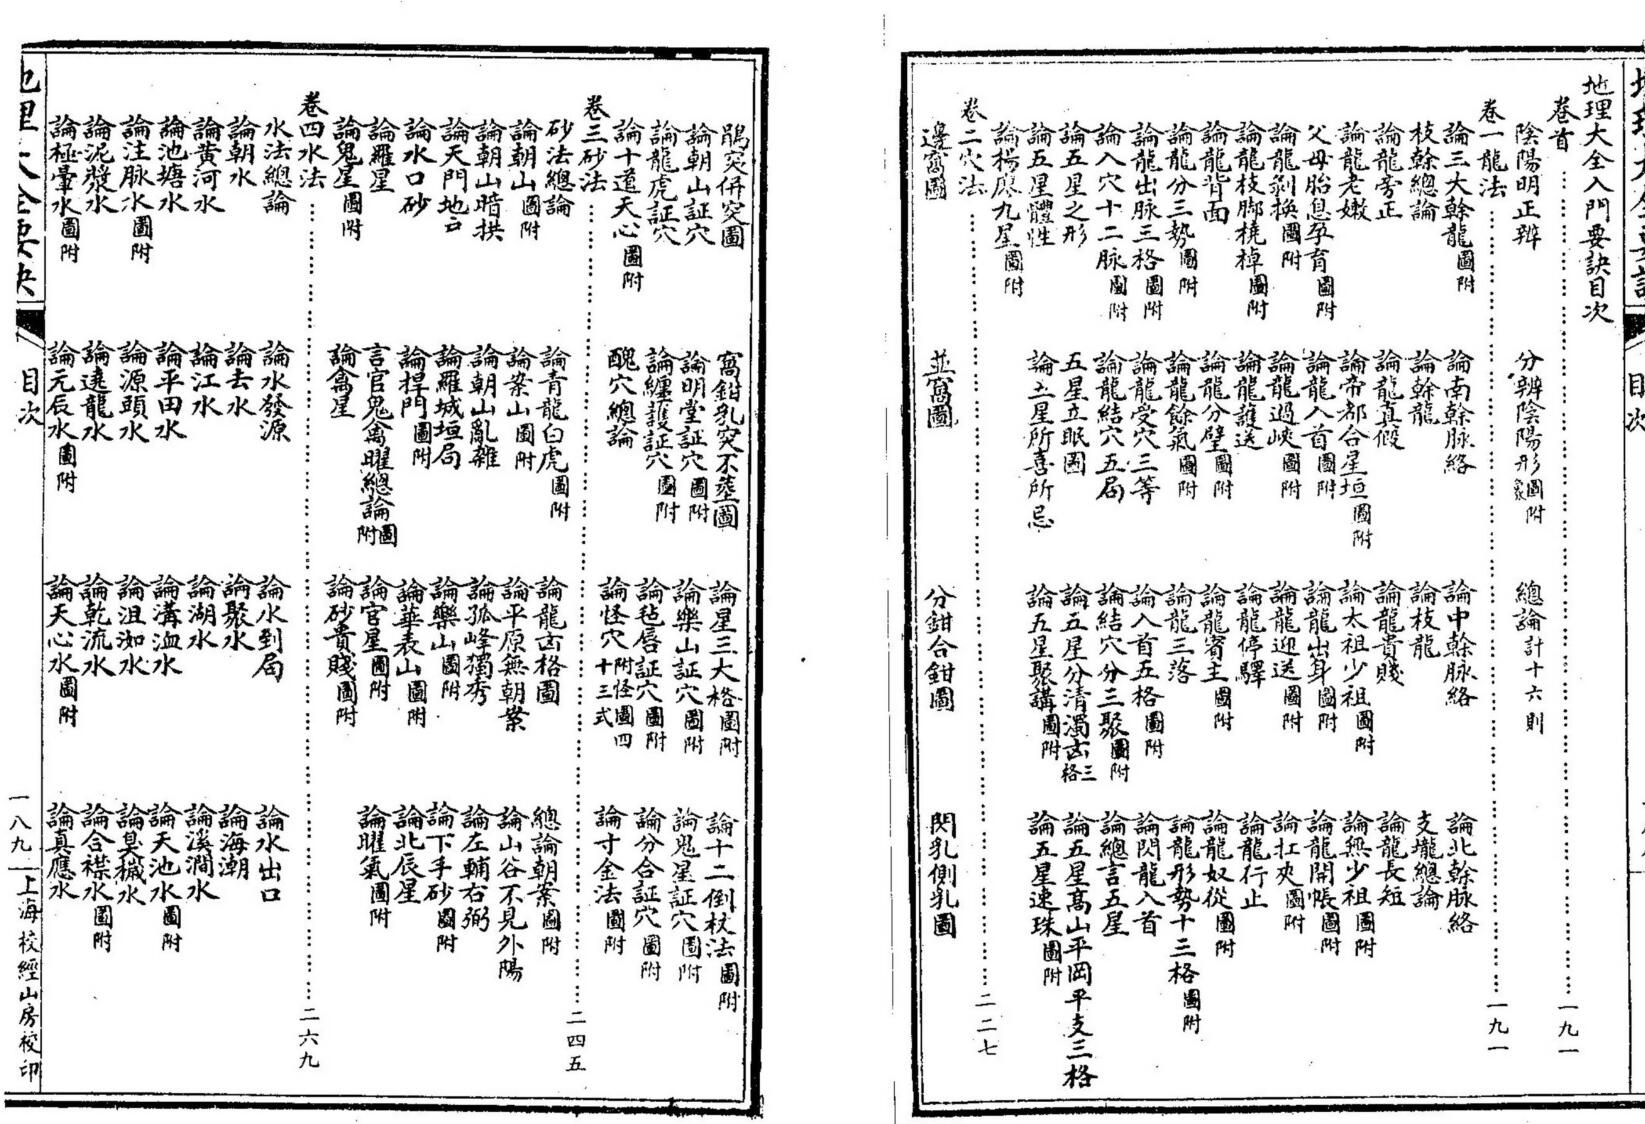 地理大全入門要訣目次
卷首……一九一
陰陽明正辨　分辨陰陽形象圖附　總論計十六則
卷一龍法……一九一
論三大幹龍圖附　論南幹脉絡　論中幹脉絡　論北幹脉絡
枝幹總論　論幹龍　論枝龍　支壠總論
論龍旁正　論龍真假　論龍貴賤　論龍長短
論龍老嫩　論帝都合星垣圖附　論太祖少祖圖附　論無少祖圖附
父母胎息孕育圖附　論龍入首圖附　論龍出身圖附　論龍開帳圖附
論龍剝換圖附　論龍過峽圖附　論龍迎送圖附　論扛夾圖附
論龍枝脚橈棹圖附　論龍護送　論龍停驛　論龍行止
論龍背面　論龍分劈圖附　論龍賓主圖附　論龍奴從圖附
論龍分三勢圖附　論龍餘氣圖附　論龍三落　論龍形勢十三格圖附
論龍出脉三格圖附　論龍受穴三等　論入首五格圖附　論閃龍入首
論入穴十二脉圖附　論龍結穴五局　論結穴分三聚圖附　論總言五星
論五星之形　五星立眠圖　論五星分清濁㕁三格　論五星高山平岡平支三格
論五星體性　論五星所喜所忌　論五星聚講圖附　論五星連珠圖附
論楊廖九星圖附
卷二穴法……二二七
邊窩圖　並窩圖　分鉗合鉗圖　閃乳側乳圖
鶻突併突圖　窩鉗乳突不葬圖　論星三大格圖附　論十二倒杖法圖附
論朝山証穴　論明堂証穴圖附　論樂山証穴圖附　論鬼星証穴圖附
論龍虎証穴　論纏護証穴圖附　論毡唇証穴圖附　論分合証穴圖附
論十道天心圖附　醜穴總論　論怪穴附怪圖四十三式　論寸金法圖附
卷三砂法……二四五
砂法總論　論青龍白虎圖附　論龍㕁格圖　總論朝案圖附
論朝山圖附　論案山圖附　論平原無朝案　論山谷不見外陽
論朝山暗拱　論朝山亂雜　論孤峰獨秀　論左輔右弼
論天門地户　論羅城垣局　論樂山圖附　論下手砂圖附
論水口砂　論捍門圖附　論華表山圖附　論北辰星
論羅星　言官鬼禽曜總論圖附　論官星圖附　論曜氣圖附
論鬼星圖附　論禽星　論砂貴賤圖附
卷四水法……二六九
水法總論　論水發源　論水到局　論水出口
論朝水　論去水　論聚水　論海潮
論黃河水　論江水　論湖水　論溪澗水
論池塘水　論平田水　論溝洫水　論天池水圖附
論注脉水圖附　論源頭水　論沮洳水　論臭穢水
論泥漿水　論遶龍水　論乾流水　論合襟水圖附
論極暈水圖附　論元辰水圖附　論天心水圖附　論真應水
地理大全要訣　目次　一八九　上海校經山房校印